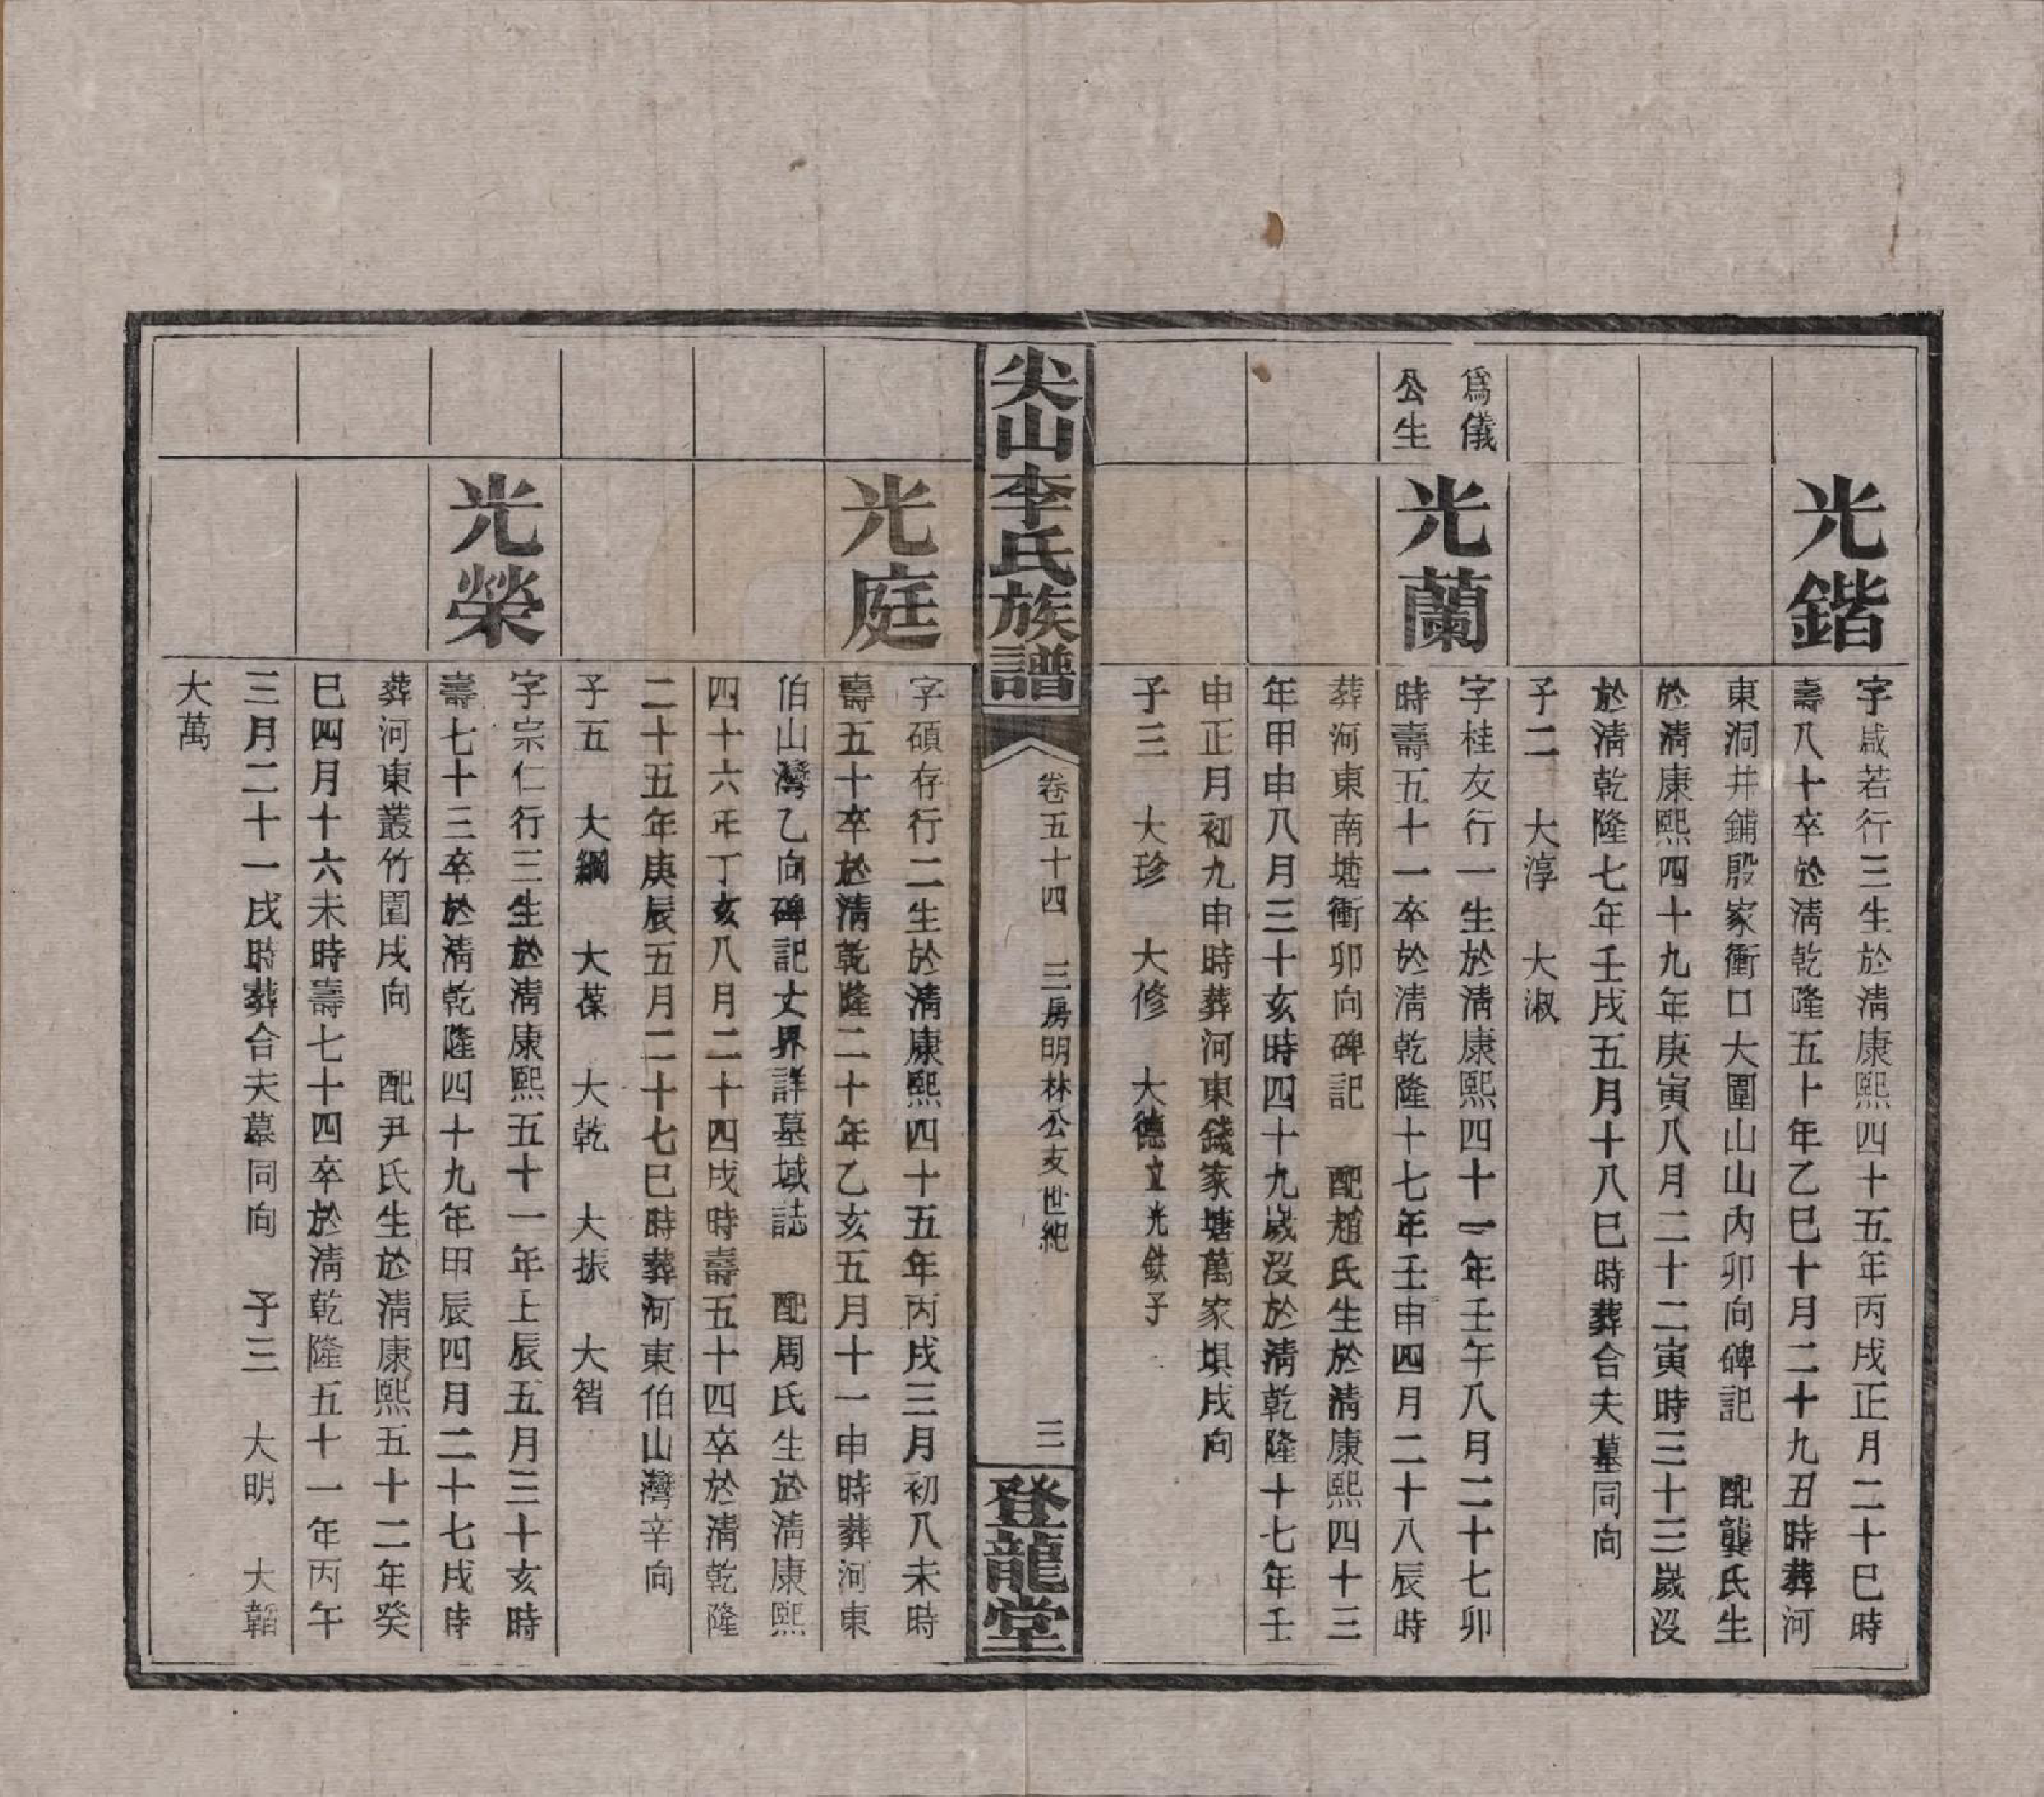 光鍇
字咸若行三生於淸康熙四十五年丙戌正月二十巳時
壽八十卒於淸乾隆五十年乙巳十月二十九丑時葬河
東洞井鋪殷家衝口大圍山山內卯向碑記 配龔氏生
於淸康熙四十九年庚寅八月二十二寅時三十三歲沒
於淸乾隆七年壬戌五月十八巳時葬合夫墓同向
子二 大淳 大淑
爲儀
公生
光蘭
字桂友行一生於淸康熙四十一年壬午八月二十七卯
時壽五十一卒於淸乾隆十七年壬申四月二十八辰時
葬河東南塘衝卯向碑記 配趙氏生於淸康熙四十三
年甲申八月三十亥時四十九歲沒於淸乾隆十七年壬
申正月初九申時葬河東錢家塘萬家垻戌向
子三 大珍 大修 大德立光鉄子
尖山李氏族譜
卷五十四 三房明林公支世紀
三
登龍堂
光庭
字碩存行二生於淸康熙四十五年丙戌三月初八未時
壽五十卒於淸乾隆二十年乙亥五月十一申時葬河東
伯山灣乙向碑記丈界詳墓域誌 配周氏生於淸康熙
四十六年丁亥八月二十四戌時壽五十四卒於淸乾隆
二十五年庚辰五月二十七巳時葬河東伯山灣辛向
子五 大綱 大葆 大乾 大振 大智
光榮
字宗仁行三生於淸康熙五十一年上辰五月三十亥時
壽七十三卒於淸乾隆四十九年甲辰四月二十七戌時
葬河東叢竹園戌向 配尹氏生於淸康熙五十二年癸
巳四月十六未時壽七十四卒於淸乾隆五十一年丙午
三月二十一戌時葬合夫墓同向 子三 大明 大韜
大萬